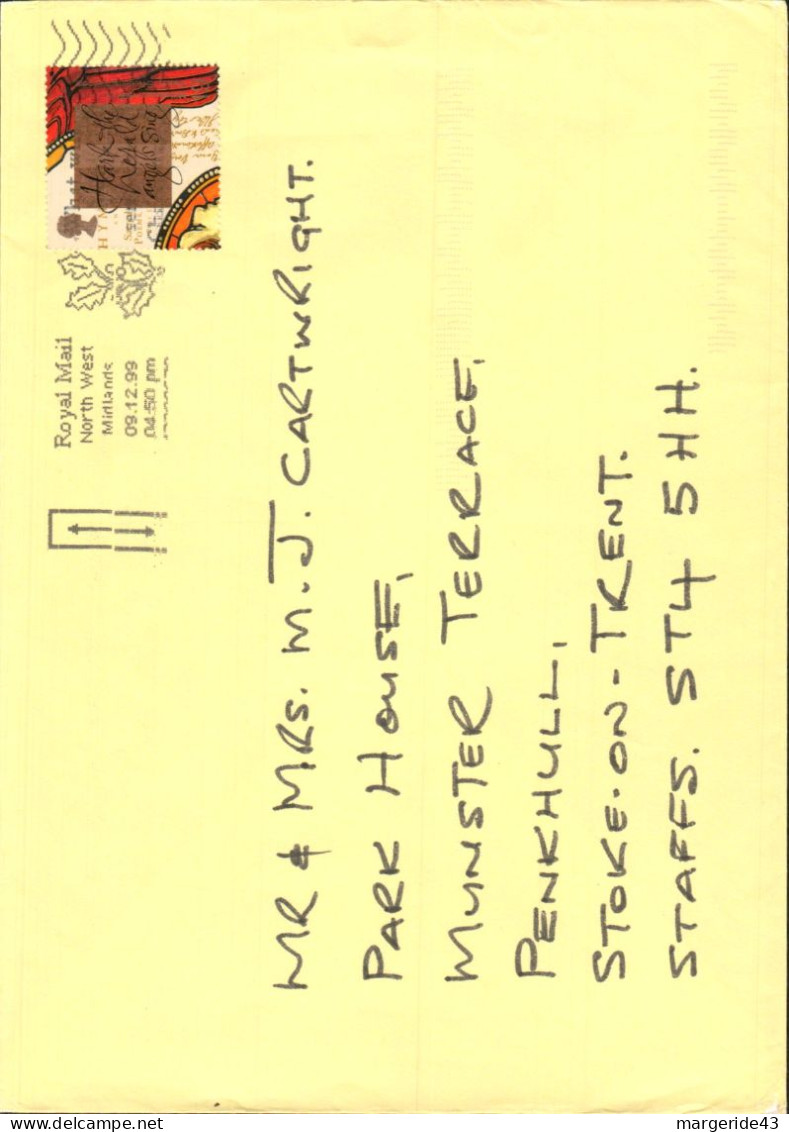 Hark the
herald
angels sing
Royal Mail
North West
Midlands
09.12.99
04:50 pm
MR & MRS. M.J. CARTWRIGHT.
PARK HOUSE,
MUNSTER TERRACE,
PENKHULL,
STOKE-ON-TRENT.
STAFFS. ST4 5HH.
margeride43